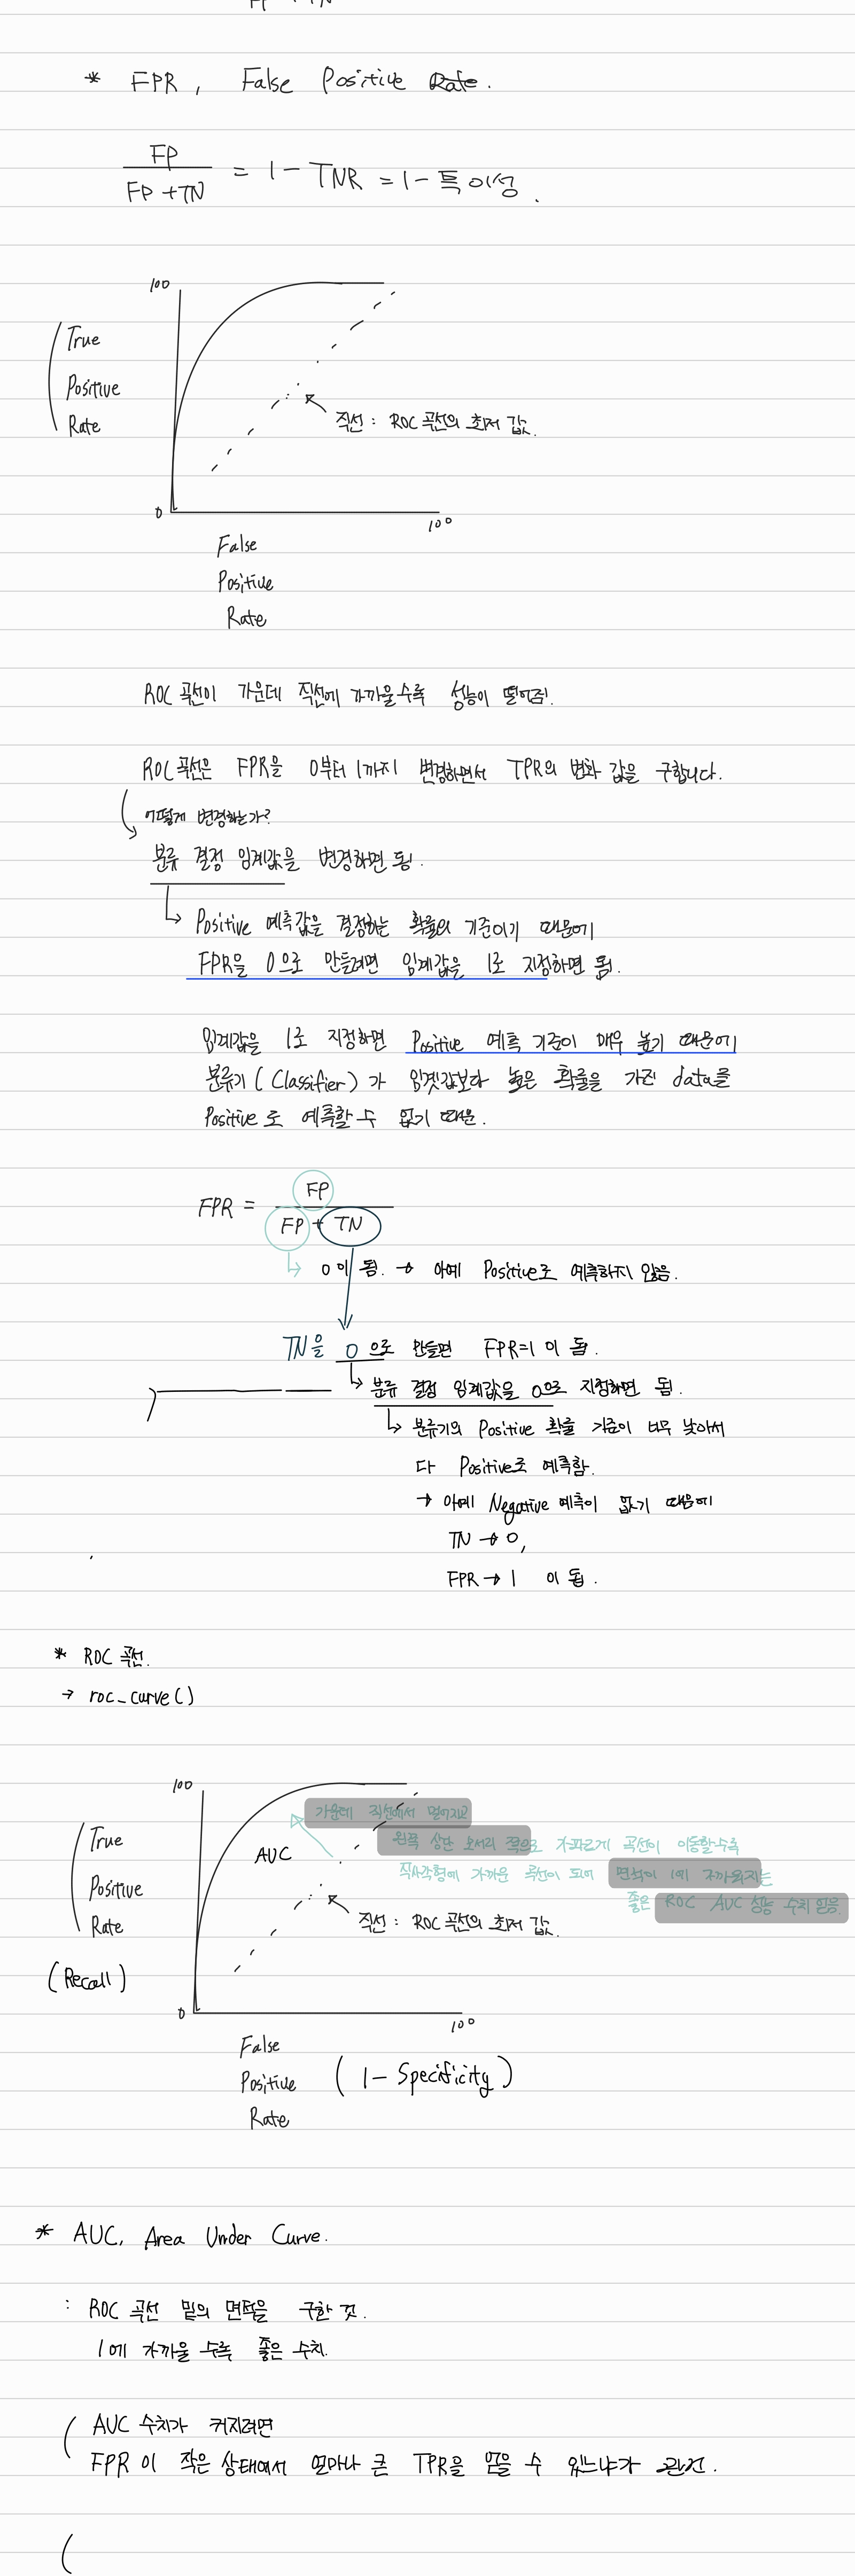 * FPR, False Positive Rate.
FP
FP + TN
= 1 - TNR = 1 - 특이성.
100
True
Positive
Rate
직선 : ROC 곡선의 최저 값.
0
100
False
Positive
Rate
ROC 곡선이 가운데 직선에 가까울수록 성능이 떨어짐!
ROC 곡선은 FPR을 0부터 1까지 변경하면서 TPR의 변화 값을 구합니다.
어떻게 변경하는가?
분류 결정 임계값을 변경하면 됨.
Positive 예측값을 결정하는 확률의 기준이기 때문에
FPR을 0으로 만들려면 임계값을 1로 지정하면 됨.
임계값을 1로 지정하면 Positive 예측 기준이 매우 높기 때문에
분류기 (Classifier) 가 임곗값보다 높은 확률을 가진 data를
Positive로 예측할 수 없기 때문.
FPR =
FP
FP + TN
0이 됨. → 아예 Positive로 예측하지 않음.
TN을 0으로 만들면 FPR=1이 됨.
분류 결정 임계값을 0으로 지정하면 됨.
분류기의 Positive 확률 기준이 너무 낮아서
다 Positive로 예측함.
→ 아예 Negative 예측이 없기 때문에
TN → 0,
FPR → 1 이 됨.
* ROC 곡선.
→ roc_curve()
100
가운데 직선에서 멀어지고
왼쪽 상단 모서리 쪽으로 가파르게 곡선이 이동할수록
AUC
True
직사각형에 가까운 곡선이 되어 면적이 1에 가까워지는
Positive
좋은 ROC AUC 성능 수치 얻음
Rate
직선 : ROC 곡선의 최저 값.
(Recall)
0
100
False
Positive (1 - Specificity)
Rate
* AUC, Area Under Curve.
: ROC 곡선 밑의 면적을 구한 것.
1에 가까울 수록 좋은 수치.
( AUC 수치가 커지려면
FPR이 작은 상태에서 얼마나 큰 TPR을 얻을 수 있느냐가 관건.
(